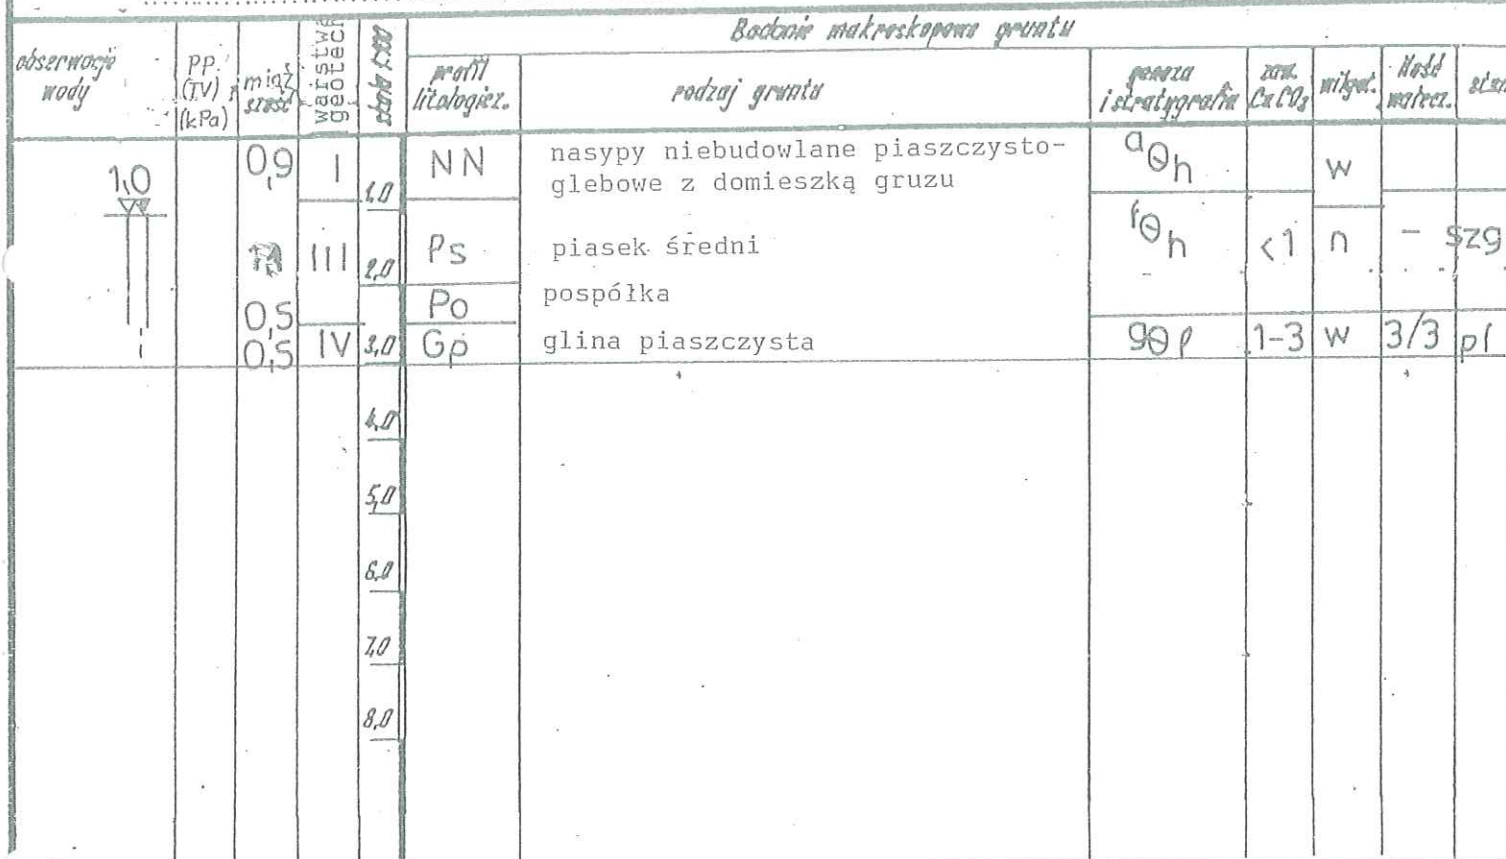 Badanie makroskopowe gruntu
obserwacje wody
PP. (TV) (kPa)
miąższość
warstwa geotech
profil litologicz.
rodzaj gruntu
geneza i stratygrafia
zaw. CaCO3
wilgot.
ilość wałecz.
stan
1,0
0,9 I 1,0 NN nasypy niebudowlane piaszczysto-
glebowe z domieszką gruzu
aQh w
III 2,0 Ps piasek średni fQh <1 n - szg
0,5 Po pospółka
0,5 IV 3,0 Gp glina piaszczysta gQp 1-3 w 3/3 pl
4,0
5,0
6,0
7,0
8,0